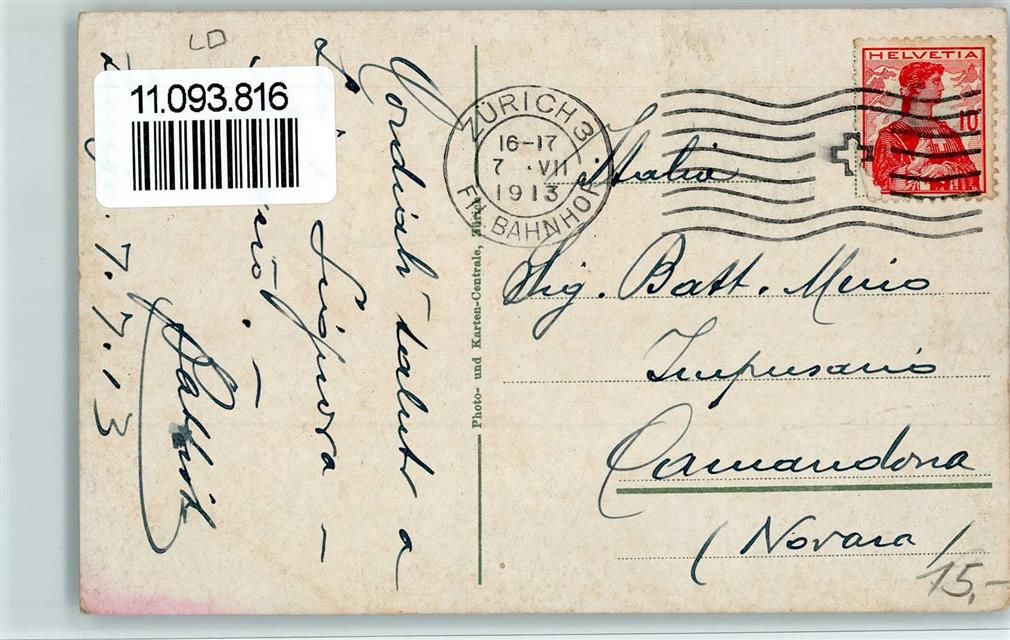 LD
11.093.816
Cordiali saluti a
Signora –
7.7.13
Photo- und Karten-Centrale, Zürich
ZÜRICH 3
16-17
7 . VII
1913
BAHNHOF
HELVETIA
10
Italia
Sig. Batt.
Impresario
Camandona
(Novara)
15,-